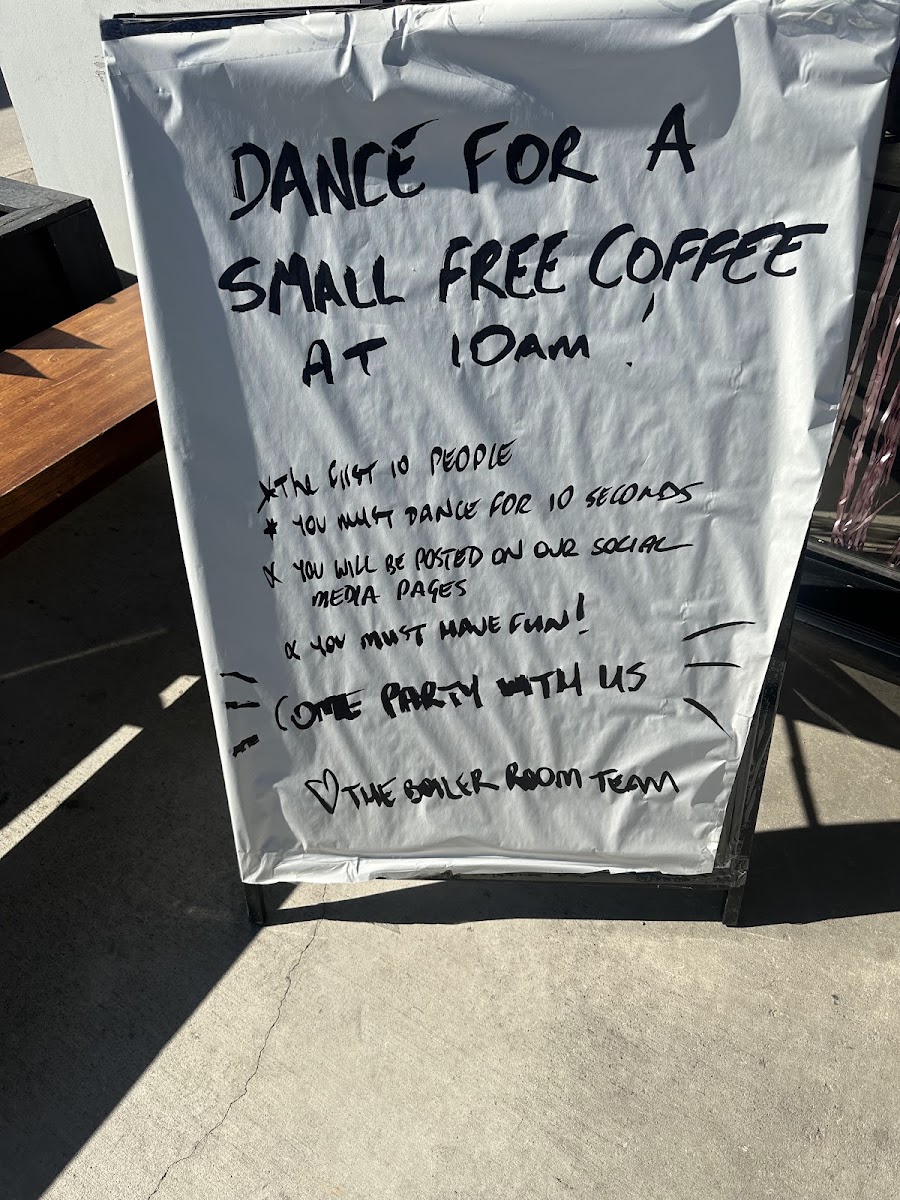 DANCE FOR A
SMALL FREE COFFEE
AT 10am!
* THE FIRST 10 PEOPLE
* YOU MUST DANCE FOR 10 SECONDS
* YOU WILL BE POSTED ON OUR SOCIAL
MEDIA PAGES
* YOU MUST HAVE FUN!
COME PARTY WITH US
♡ THE BOILER ROOM TEAM